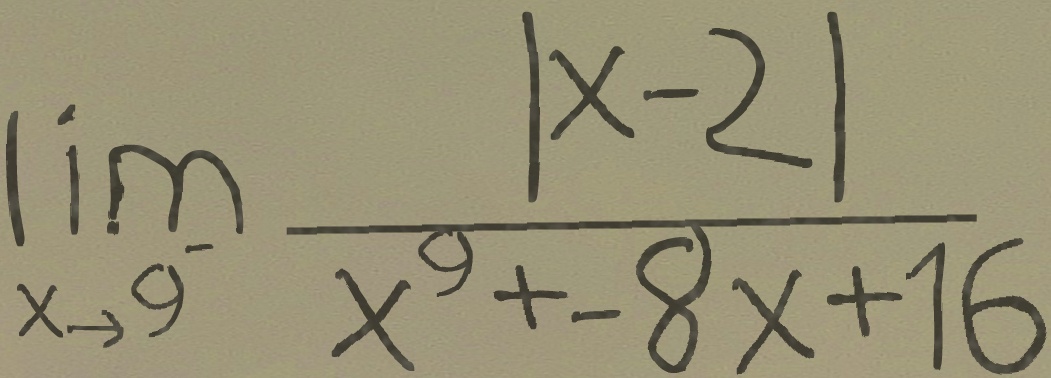 lim x→9⁻ |x-2| / x⁹+-8x+16